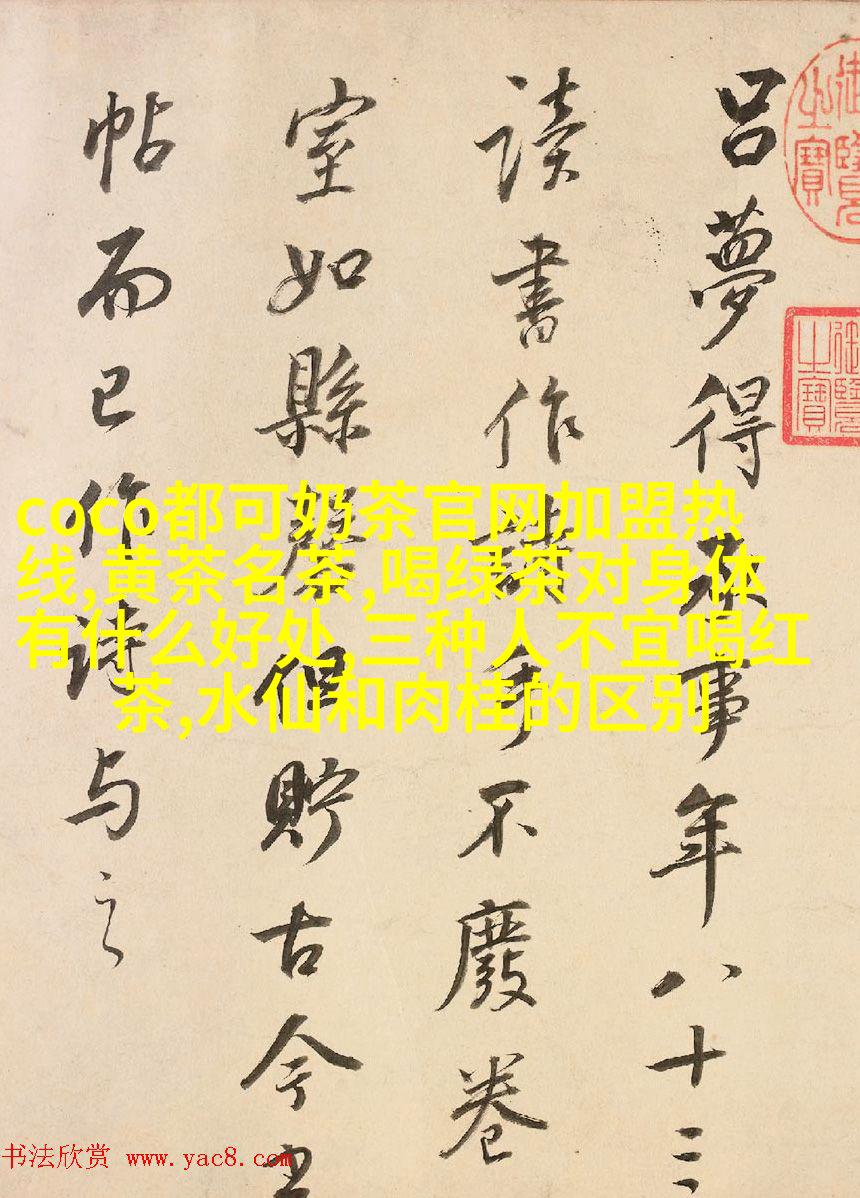 呂夢得承事年八十三
讀書作詩手不廢卷
室如縣磬但貯古今
帖而已作詩与之
御覽之寶
御覽之寶
coco都可奶茶官网加盟热
线,黄茶名茶,喝绿茶对身体
有什么好处,三种人不宜喝红
茶,水仙和肉桂的区别
书法欣赏 www.yac8.com